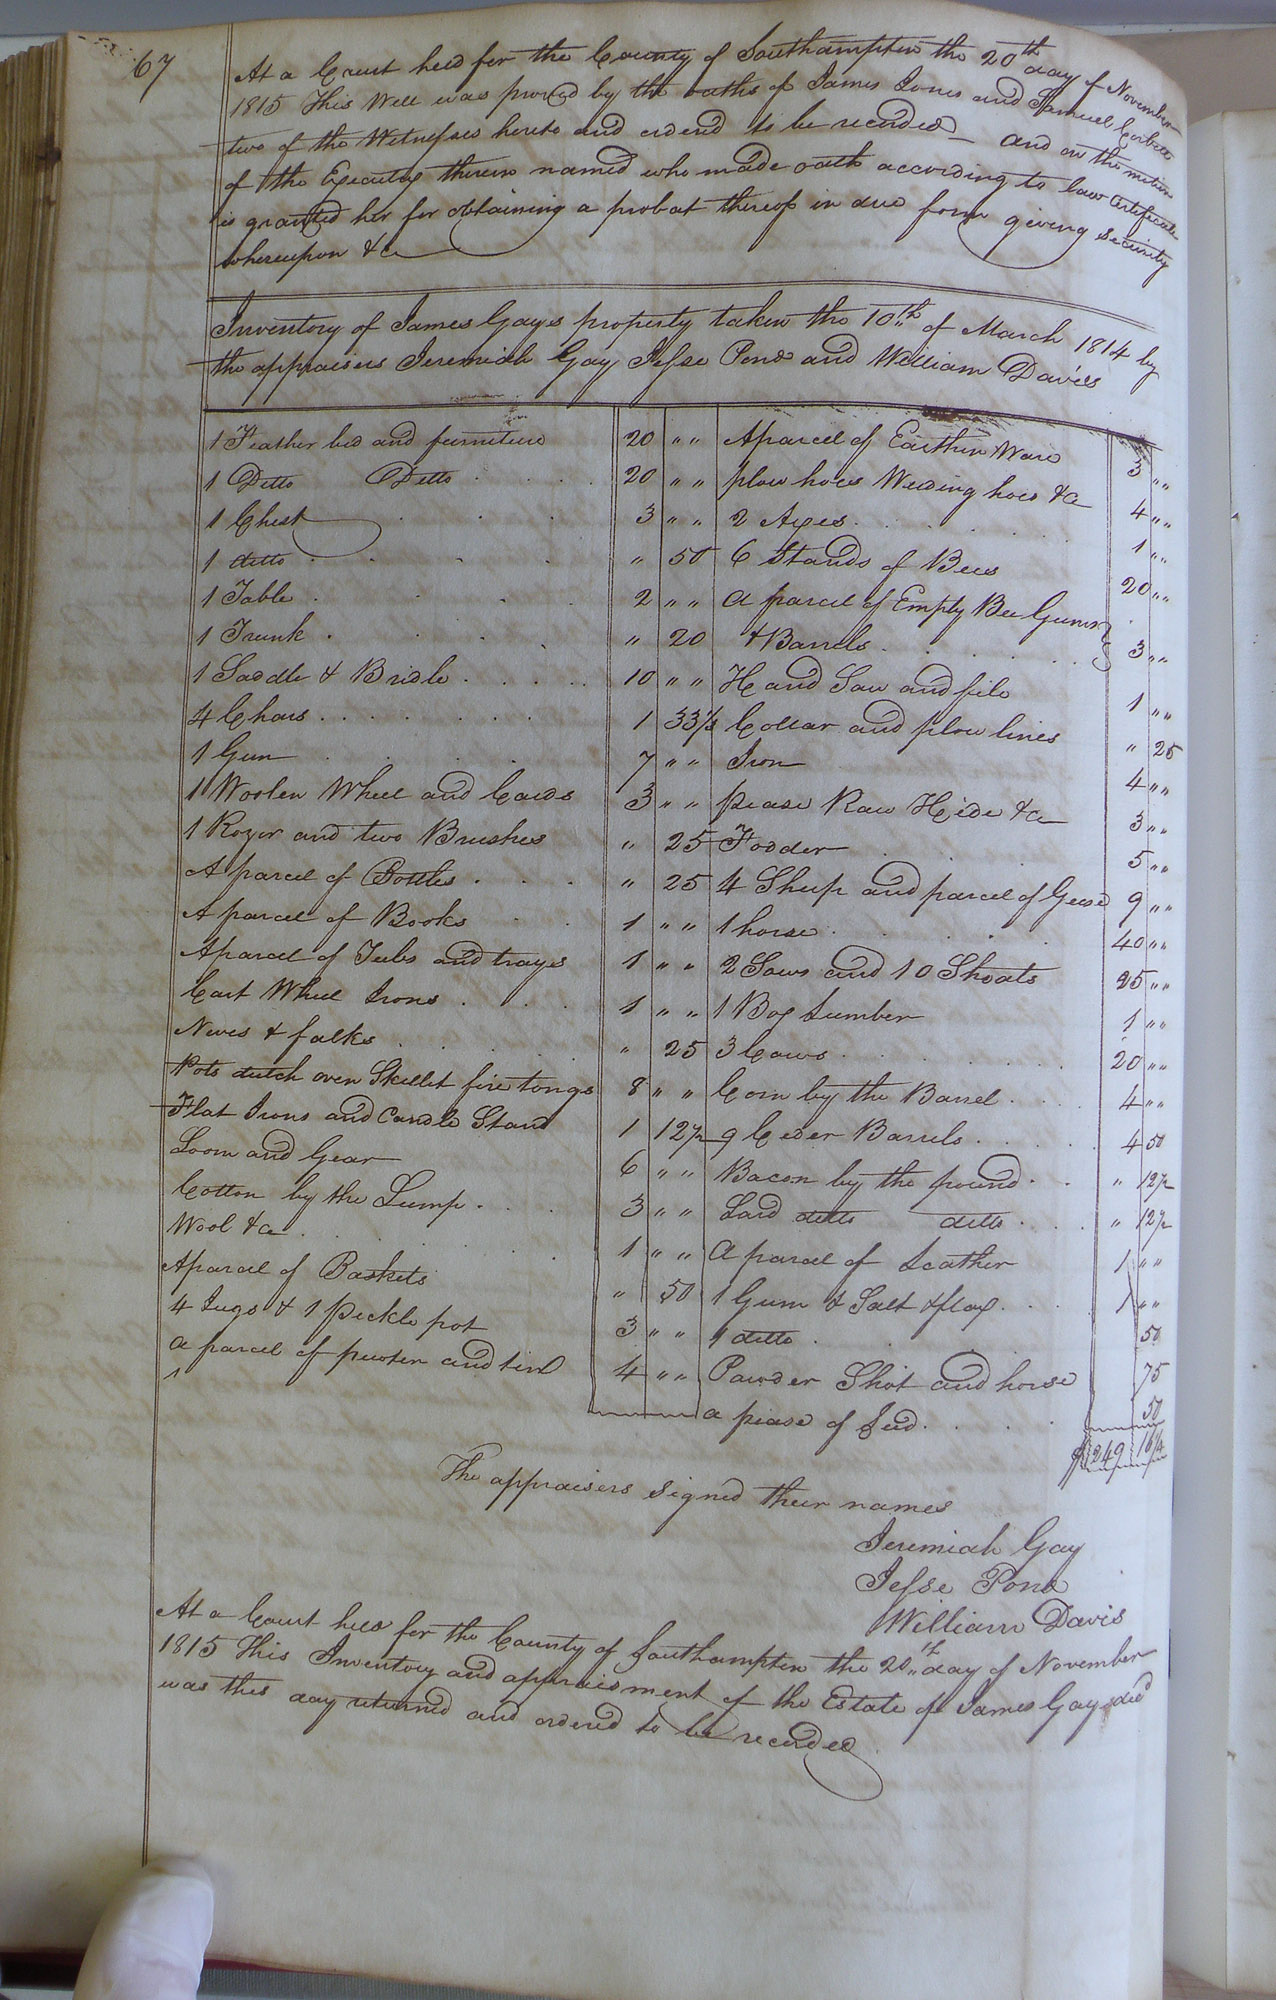 67
At a Court held for the County of Southampton the 20th day of November
1815 This Will was proved by the oaths of James Jones and Samuel Corbett
two of the Witnesses hereto and ordered to be recorded and on the motion
of the Executrix therein named who made oath according to law Certificate
is granted her for obtaining a probat thereof in due form giving Security
whereupon &c
Inventory of James Gays property taken the 10th of March 1814 by
the appraisers Jeremiah Gay Jesse Pond and William Davis
1 Feather bed and furniture 20 " "
1 Ditto Ditto 20 " "
1 Chest 3 " "
1 ditto " 50
1 Table 2 " "
1 Trunk " 20
1 Saddle & Bridle 10 " "
4 Chars 1 33 1/3
1 Gun 7 " "
1 Woolen Wheel and Cards 3 " "
1 Rozor and two Brushes " 25
A parcel of Bottles " 25
A parcel of Books 1 " "
A parcel of Tubs and trays 1 " "
Cart Wheel Irons 1 " "
Nives & falks " 25
Pots dutch oven Skillet fire tongs 8 " "
Flat Irons and Candle Stand 1 12 1/2
Loom and Gear 6 " "
Cotton by the Lump 3 " "
Wool &c 1 " "
A parcel of Baskets " 50
4 Jugs & 1 Pickle pot 3 " "
a parcel of pewter and tin 4 " "
A parcel of Earthen Ware 3 " "
plow hoes Weeding hoes &c 4 " "
2 Axes 1 " "
6 Stands of Bees 20 " "
a parcel of Empty Bee Gums
& Barrels 3 " "
Hand Saw and file 1 " "
Collar and plow lines " 25
Iron 4 " "
pease Raw Hide &c 3 " "
Fodder 5 " "
4 Sheep and parcel of Geese 9 " "
1 horse 40 " "
2 Sows and 10 Shoats 25 " "
1 Box Lumber 1 " "
3 Cows 20 " "
Corn by the Barrel 4 " "
9 Ceder Barrels 4 50
Bacon by the pound " 12 1/2
Lard ditto ditto " 12 1/2
a parcel of Leather 1 " "
1 Gum & Salt & flax 1 " "
1 ditto 50
Pawder Shot and horse 75
a piase of Led 50
$249 16 1/4
The appraisers signed their names
Jeremiah Gay
Jesse Pond
William Davis
At a Court held for the County of Southampton the 20th day of November
1815 This Inventory and appraisment of the Estate of James Gay decd
was this day returned and ordered to be recorded